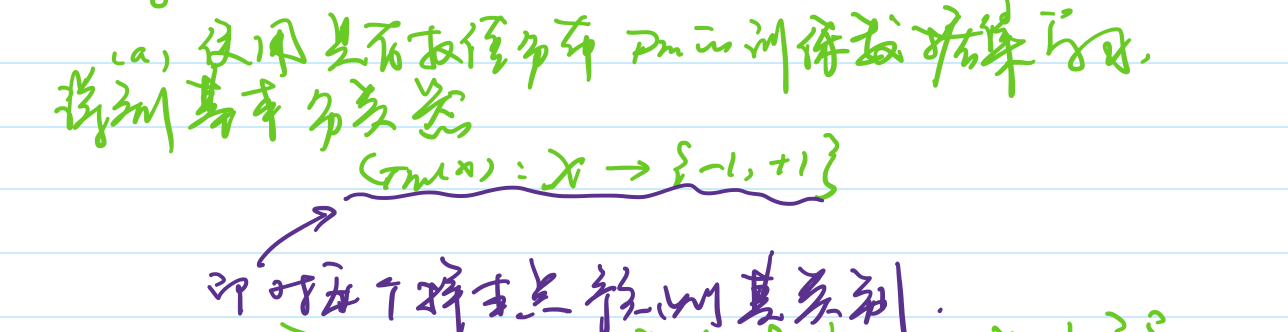 (a) 使用具有权值分布 Dm 的训练数据集学习,
得到基本分类器
Gm(x): X → {-1, +1}
即对每个样本点预测其类别.